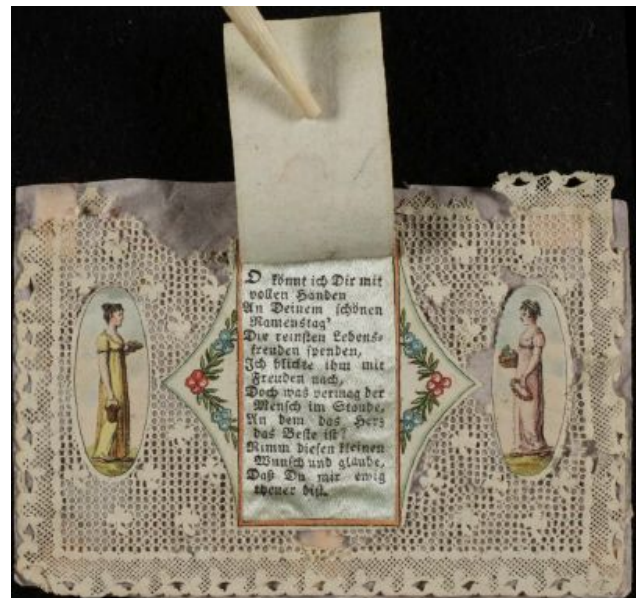 O könnt ich Dir mit
vollen Händen
An Deinem schönen
Namenstag'
Die reinsten Lebens-
freuden spenden,
Ich blickte ihm mit
Freuden nach,
Doch was vermag der
Mensch im Staube,
An dem das Herz
das Beste ist?
Nimm diesen kleinen
Wunsch und glaube,
Daß Du mir ewig
theuer bist.